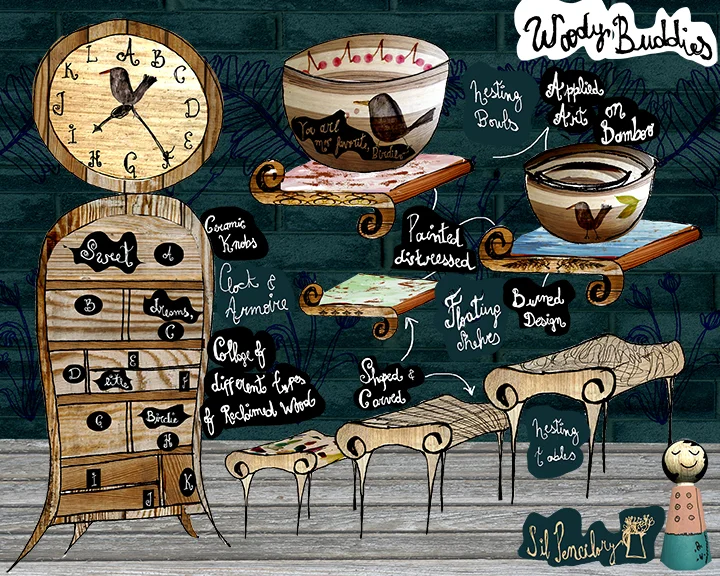 Woody Buddies
A
B
C
D
E
F
G
H
I
J
K
L
You are
my favorite,
Birdie
Nesting
Bowls
Applied
Art on
Bamboo
Ceramic
Knobs
Painted
distressed
Clock &
Armoire
Floating
Shelves
Burned
Design
Collage of
different types
of Reclaimed Wood
Shaped &
Carved
Nesting
tables
Secret A
B dreams, C
D E F
G Birdie H
I J K
Sil Pencilory